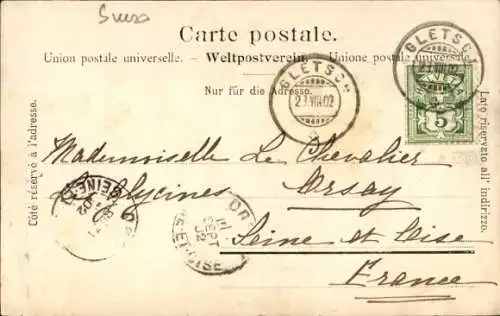 Carte postale.
Union postale universelle. — Weltpostverein. — Unione postale universale.
Nur für die Adresse.
Côté réservé à l'adresse.
Lato riservato all' indirizzo.
GLETSCH
VIII.02
GLETSCH
VIII.02
5
Mademoiselle Le Chevalier
Glycines Orsay
Seine et Oise
France
OR
SEPT
02
ET-OISE
SEINE
02